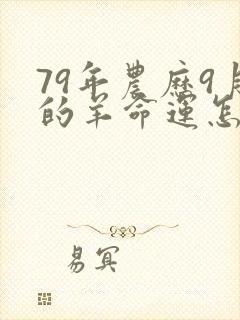 79年農歷9月
的羊命運怎
易冥